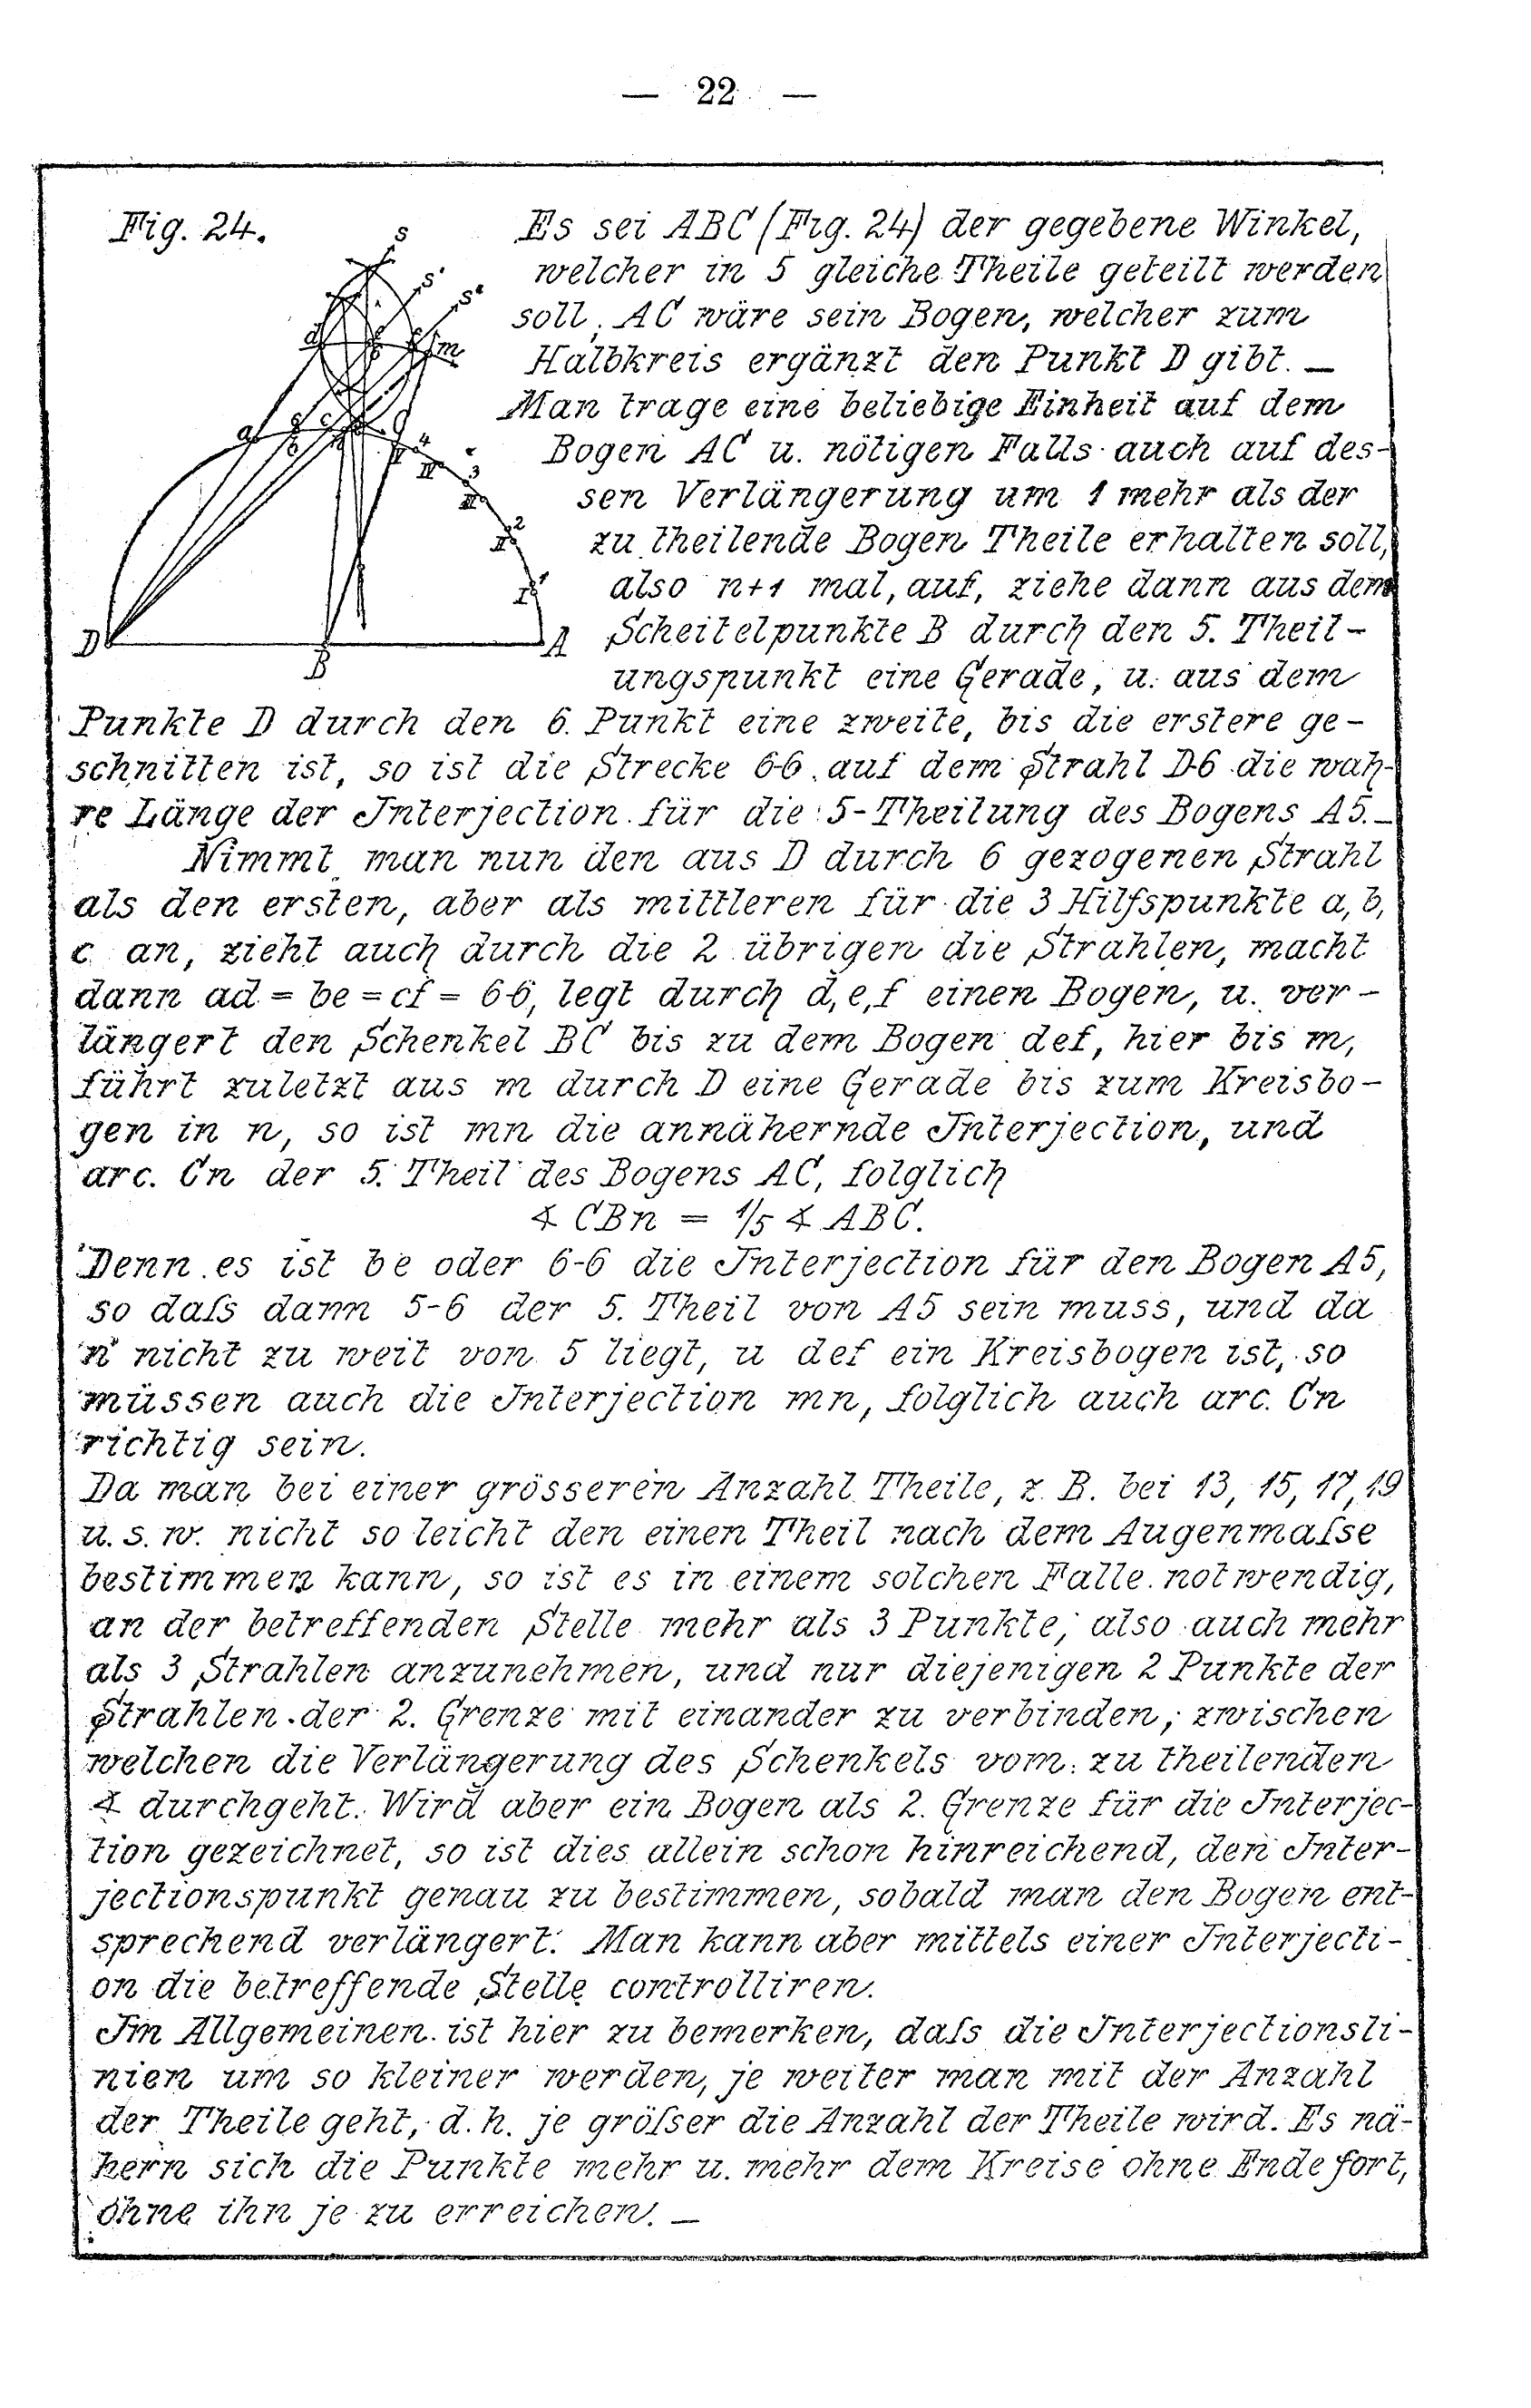 — 22 —
Fig. 24.
Es sei ABC (Fig. 24) der gegebene Winkel,
welcher in 5 gleiche Theile geteilt werden
soll, AC wäre sein Bogen, welcher zum
Halbkreis ergänzt den Punkt D gibt. —
Man trage eine beliebige Einheit auf dem
Bogen AC u. nötigen Falls auch auf des-
sen Verlängerung um 1 mehr als der
zu theilende Bogen Theile erhalten soll,
also n+1 mal, auf, ziehe dann aus dem
Scheitelpunkte B durch den 5. Theil-
ungspunkt eine Gerade, u. aus dem
Punkte D durch den 6. Punkt eine zweite, bis die erstere ge-
schnitten ist, so ist die Strecke 6-6 auf dem Strahl D-6 die wah-
re Länge der Interjection für die 5-Theilung des Bogens A5. —
Nimmt man nun den aus D durch 6 gezogenen Strahl
als den ersten, aber als mittleren für die 3 Hilfspunkte a, b,
c an, zieht auch durch die 2 übrigen die Strahlen, macht
dann ad = be = cf = 6-6, legt durch d, e, f einen Bogen, u. ver-
längert den Schenkel BC bis zu dem Bogen def, hier bis m,
führt zuletzt aus m durch D eine Gerade bis zum Kreisbo-
gen in n, so ist mn die annähernde Interjection, und
arc. Cn der 5. Theil des Bogens AC, folglich
∢ CBn = 1/5 ∢ ABC.
Denn es ist be oder 6-6 die Interjection für den Bogen A5,
so daſs dann 5-6 der 5. Theil von A5 sein muss, und da
n nicht zu weit von 5 liegt, u def ein Kreisbogen ist, so
müssen auch die Interjection mn, folglich auch arc. Cn
richtig sein.
Da man bei einer grösseren Anzahl Theile, z. B. bei 13, 15, 17, 19
u. s. w. nicht so leicht den einen Theil nach dem Augenmaſse
bestimmen kann, so ist es in einem solchen Falle notwendig,
an der betreffenden Stelle mehr als 3 Punkte, also auch mehr
als 3 Strahlen anzunehmen, und nur diejenigen 2 Punkte der
Strahlen der 2. Grenze mit einander zu verbinden, zwischen
welchen die Verlängerung des Schenkels vom zu theilenden
∢ durchgeht. Wird aber ein Bogen als 2. Grenze für die Interjec-
tion gezeichnet, so ist dies allein schon hinreichend, den Inter-
jectionspunkt genau zu bestimmen, sobald man den Bogen ent-
sprechend verlängert. Man kann aber mittels einer Interjecti-
on die betreffende Stelle controlliren.
Im Allgemeinen ist hier zu bemerken, daſs die Interjectionsli-
nien um so kleiner werden, je weiter man mit der Anzahl
der Theile geht, d. h. je gröſser die Anzahl der Theile wird. Es nä-
hern sich die Punkte mehr u. mehr dem Kreise ohne Ende fort,
ohne ihn je zu erreichen. —
S
S'
S"
d
m
a
4
IV
3
III
2
II
1
I
D
B
A